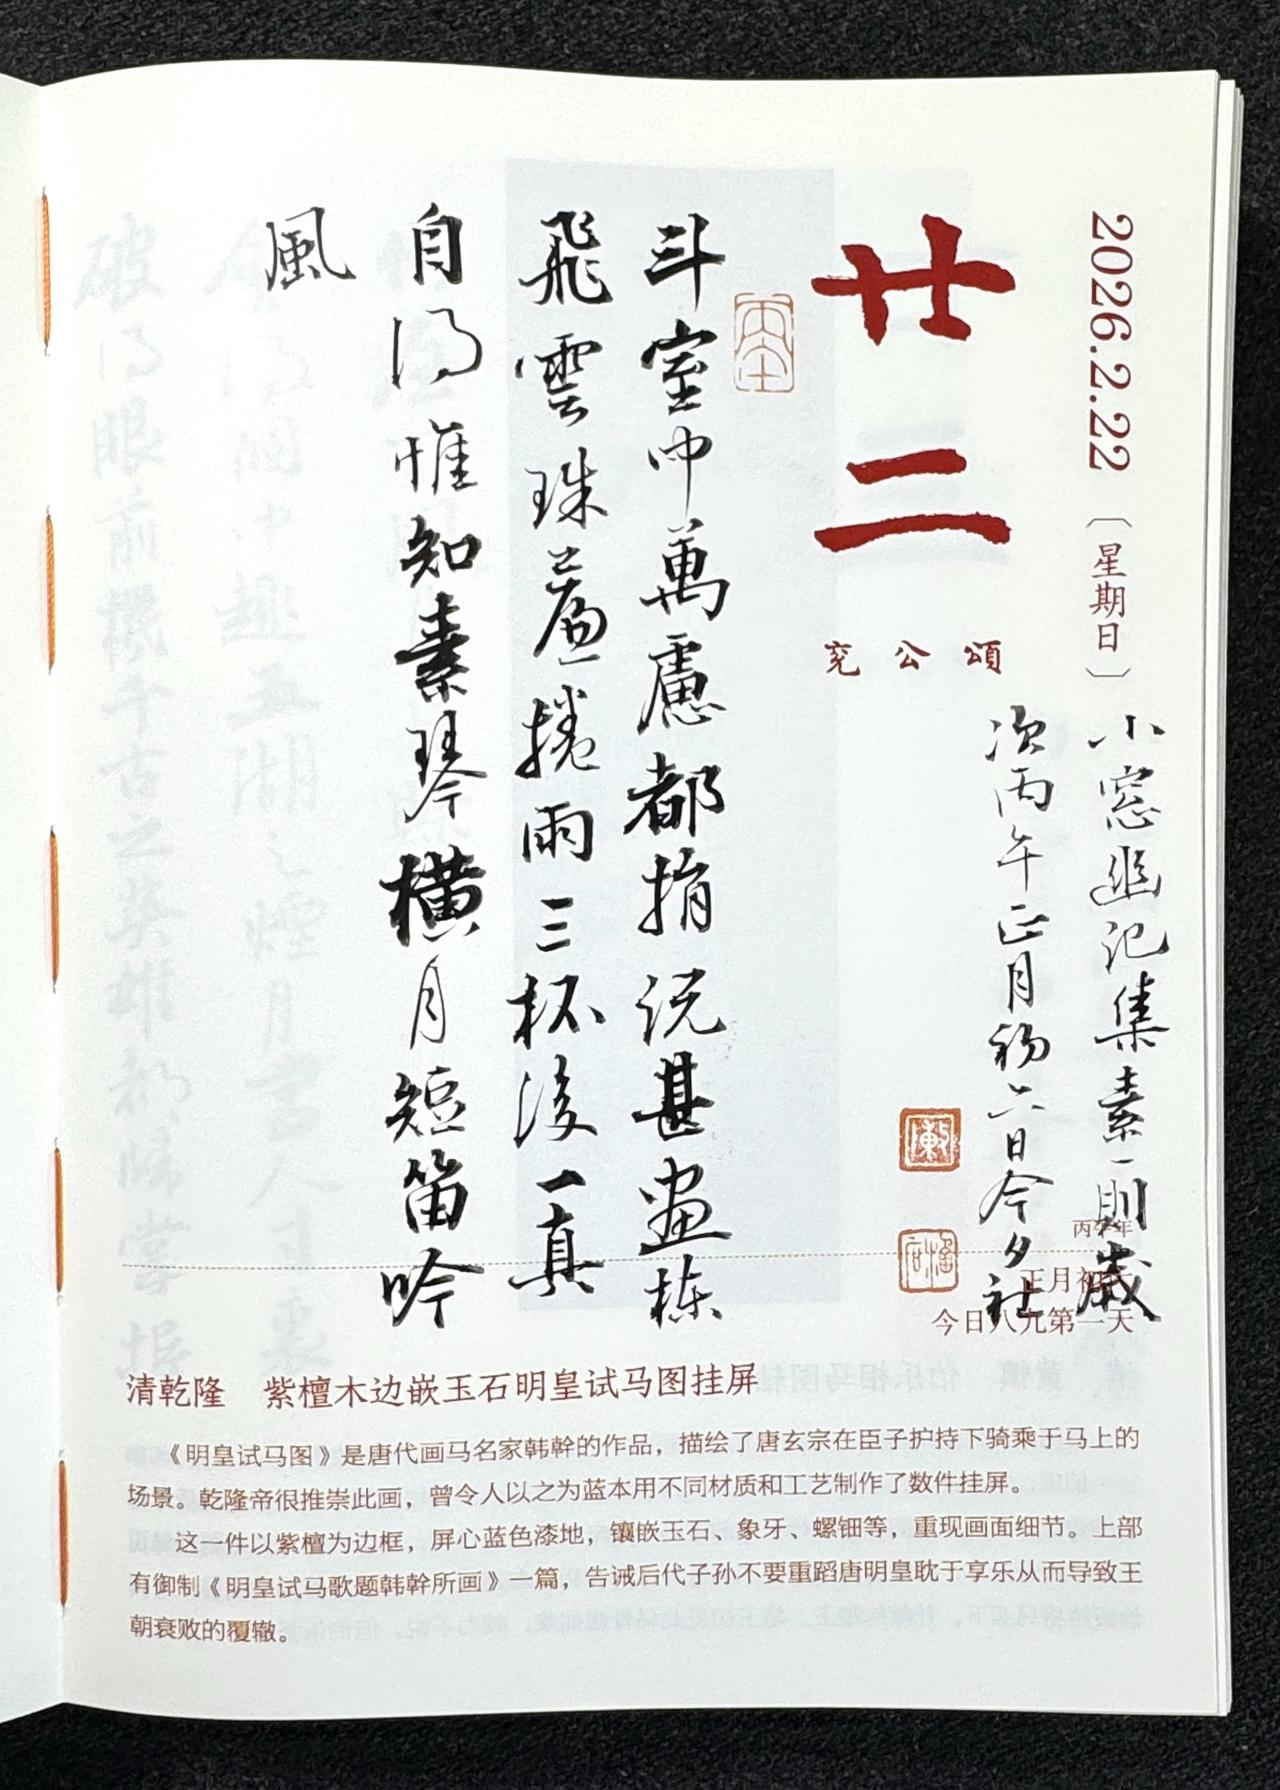 2026.2.22〔星期日〕
廿二
頌公兖
斗室中萬慮都捐説甚畫棟
飛雲珠簾捲雨三杯後一真
自得惟知素琴橫月短笛吟
風
小窓幽記集素一則歲
次丙午正月初六日今夕社
丙午年
正月初六
今日八九第一天
清乾隆　紫檀木边嵌玉石明皇试马图挂屏
《明皇试马图》是唐代画马名家韩幹的作品，描绘了唐玄宗在臣子护持下骑乘于马上的
场景。乾隆帝很推崇此画，曾令人以之为蓝本用不同材质和工艺制作了数件挂屏。
这一件以紫檀为边框，屏心蓝色漆地，镶嵌玉石、象牙、螺钿等，重现画面细节。上部
有御制《明皇试马歌题韩幹所画》一篇，告诫后代子孙不要重蹈唐明皇耽于享乐从而导致王
朝衰败的覆辙。